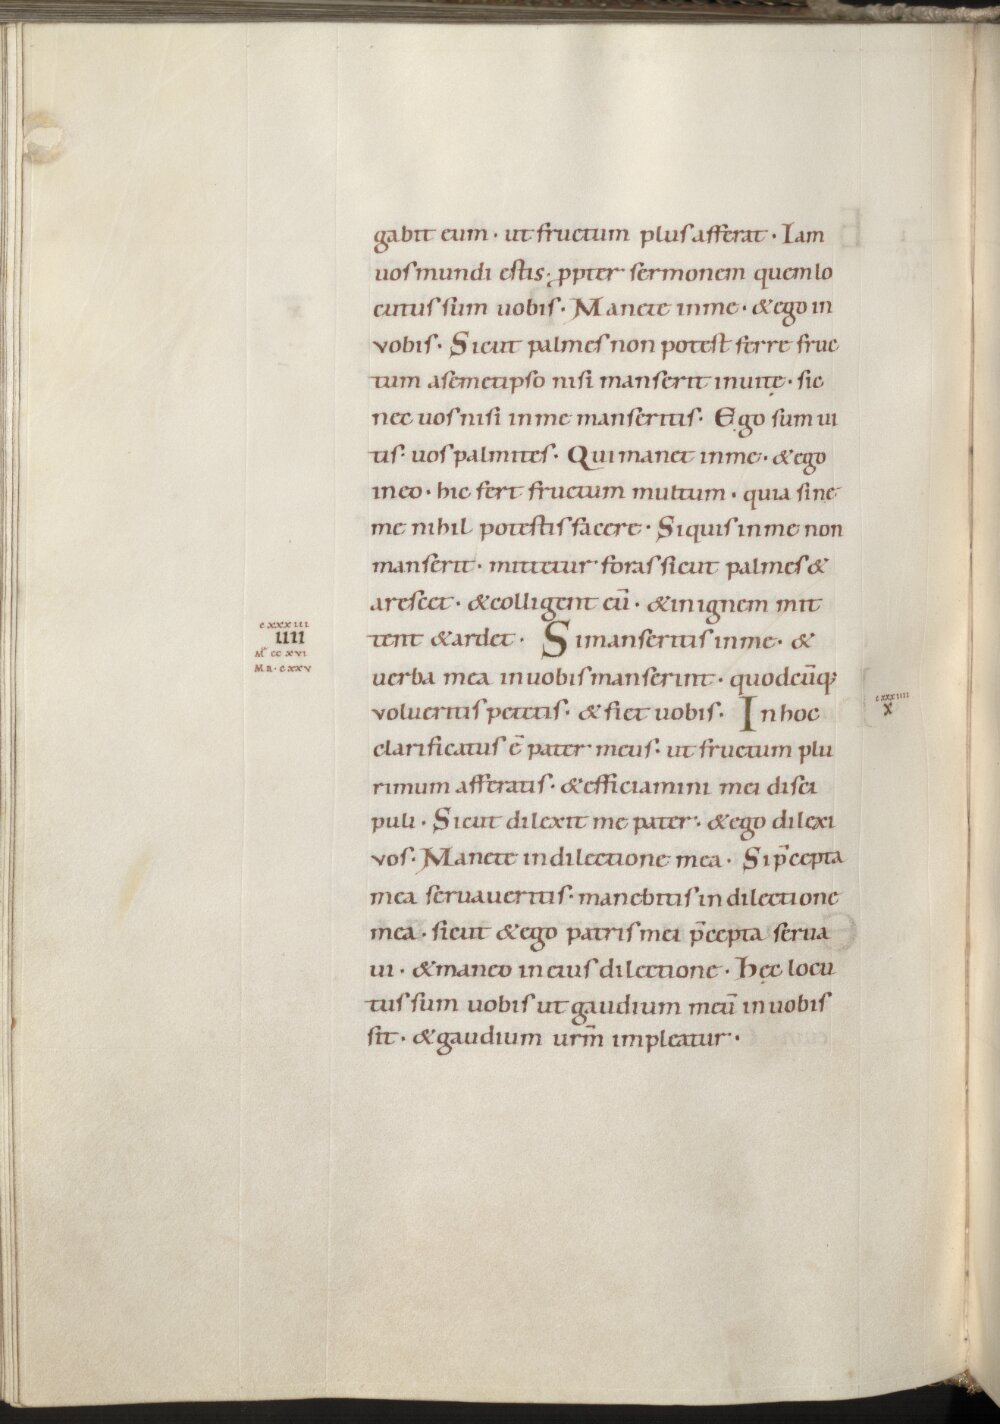 gabit eum · ut fructum plus afferat · Iam
uos mundi estis · ꝓpter sermonem quem lo
cutus sum uobis · Manete in me · & ego in
vobis · Sicut palmes non potest ferre fruc
tum a semetipso nisi manserit in uite · sic
nec uos nisi in me manseritis · Ego sum ui
tis · uos palmites · Qui manet in me · & ego
in eo · hic fert fructum multum · quia sine
me nihil potestis facere · Si quis in me non
manserit · mittetur foras sicut palmes &
arescet · & colligent eū · & in ignem mit
cxxxiii
IIII
Mͬ ccxvi
Ma · cxxv
tent & ardet · Si manseritis in me · &
uerba mea in uobis manserint · quodcūq;
volueritis petetis · & fiet uobis · In hoc
cxxxiiii
X
clarificatus ē pater meus · ut fructum plu
rimum afferatis · & efficiamini mei disci
puli · Sicut dilexit me pater · & ego dilexi
vos · Manete in dilectione mea · Si p̄cepta
mea servaueritis · manebitis in dilectione
mea · sicut & ego patris mei p̄cepta serua
ui · & maneo in eius dilectione · hęc locu
tus sum uobis ut gaudium meū in uobis
sit · & gaudium urm̄ impleatur ·